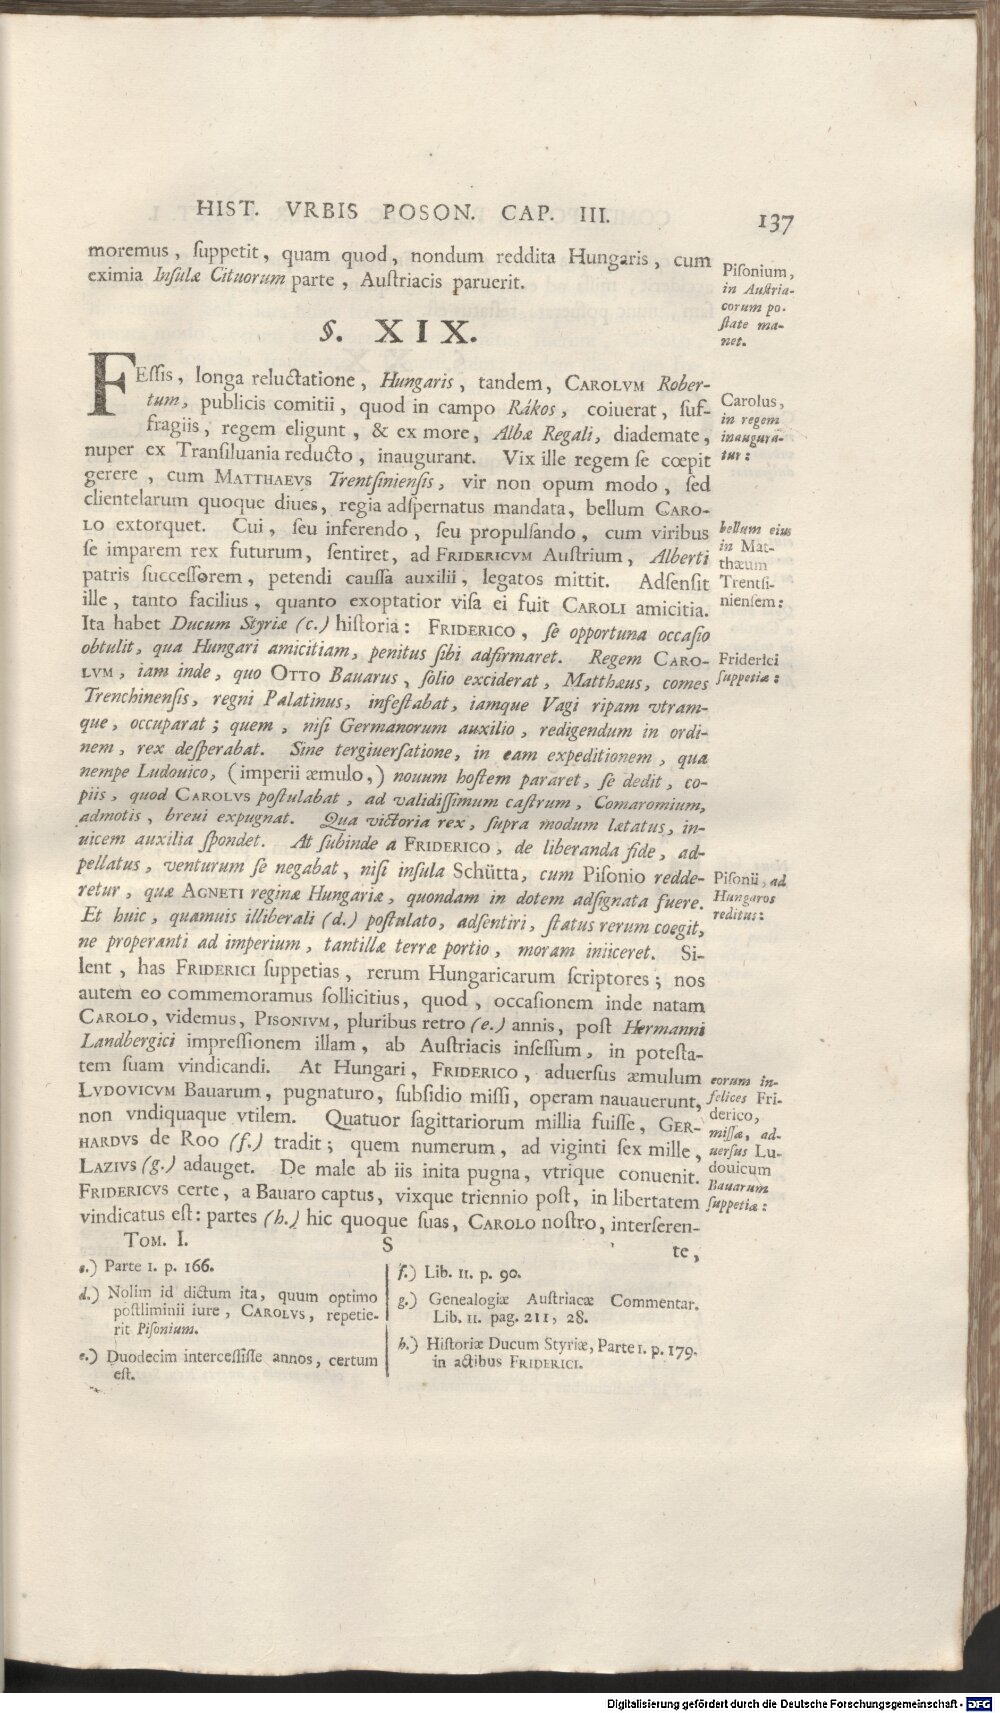 HIST. VRBIS POSON. CAP. III.
137
moremus, ſuppetit, quam quod, nondum reddita Hungaris, cum
eximia Inſulæ Cituorum parte, Auſtriacis paruerit.
Piſonium,
in Auſtria-
corum po-
ſtate ma-
net.
§. XIX.
FEſſis, longa reluctatione, Hungaris, tandem, CAROLVM Rober-
tum, publicis comitii, quod in campo Rákos, coiuerat, ſuf-
fragiis, regem eligunt, & ex more, Albæ Regali, diademate,
nuper ex Tranſiluania reducto, inaugurant. Vix ille regem ſe cœpit
gerere, cum MATTHAEVS Trentſinienſis, vir non opum modo, ſed
clientelarum quoque diues, regia adſpernatus mandata, bellum CARO-
LO extorquet. Cui, ſeu inferendo, ſeu propulſando, cum viribus
ſe imparem rex futurum, ſentiret, ad FRIDERICVM Auſtrium, Alberti
patris ſucceſſorem, petendi cauſſa auxilii, legatos mittit. Adſenſit
ille, tanto facilius, quanto exoptatior viſa ei fuit CAROLI amicitia.
Ita habet Ducum Styriæ (c.) hiſtoria: FRIDERICO, ſe opportuna occaſio
obtulit, qua Hungari amicitiam, penitus ſibi adfirmaret. Regem CARO-
LVM, iam inde, quo OTTO Bauarus, ſolio exciderat, Matthæus, comes
Trenchinenſis, regni Palatinus, infeſtabat, iamque Vagi ripam vtram-
que, occuparat; quem, niſi Germanorum auxilio, redigendum in ordi-
nem, rex deſperabat. Sine tergiuerſatione, in eam expeditionem, qua
nempe Ludouico, (imperii æmulo,) nouum hoſtem pararet, ſe dedit, co-
piis, quod CAROLVS poſtulabat, ad validiſſimum caſtrum, Comaromium,
admotis, breui expugnat. Qua victoria rex, ſupra modum lætatus, in-
uicem auxilia ſpondet. At ſubinde a FRIDERICO, de liberanda fide, ad-
pellatus, venturum ſe negabat, niſi inſula Schütta, cum Piſonio redde-
retur, quæ AGNETI reginæ Hungariæ, quondam in dotem adſignata fuere.
Et huic, quamuis illiberali (d.) poſtulato, adſentiri, ſtatus rerum coegit,
ne properanti ad imperium, tantillæ terræ portio, moram iniiceret. Si-
lent, has FRIDERICI ſuppetias, rerum Hungaricarum ſcriptores; nos
autem eo commemoramus ſollicitius, quod, occaſionem inde natam
CAROLO, videmus, PISONIVM, pluribus retro (e.) annis, poſt Hermanni
Landbergici impreſſionem illam, ab Auſtriacis inſeſſum, in poteſta-
tem ſuam vindicandi. At Hungari, FRIDERICO, aduerſus æmulum
LVDOVICVM Bauarum, pugnaturo, ſubſidio miſſi, operam nauauerunt,
non vndiquaque vtilem. Quatuor ſagittariorum millia fuiſſe, GER-
HARDVS de Roo (f.) tradit; quem numerum, ad viginti ſex mille,
LAZIVS (g.) adauget. De male ab iis inita pugna, vtrique conuenit.
FRIDERICVS certe, a Bauaro captus, vixque triennio poſt, in libertatem
vindicatus eſt: partes (h.) hic quoque ſuas, CAROLO noſtro, interſeren-
Carolus,
in regem
inaugura-
tur:
bellum eius
in Mat-
thæum
Trentſi-
nienſem:
Friderici
ſuppetiæ:
Piſonii, ad
Hungaros
reditus:
eorum in-
felices Fri-
derico,
miſſæ, ad-
uerſus Lu-
douicum
Bauarum
ſuppetiæ:
TOM. I.
S
te,
c.) Parte I. p. 166.
d.) Nolim id dictum ita, quum optimo
poſtliminii iure, CAROLVS, repetie-
rit Piſonium.
e.) Duodecim interceſſiſſe annos, certum
eſt.
f.) Lib. II. p. 90.
g.) Genealogiæ Auſtriacæ Commentar.
Lib. II. pag. 211, 28.
h.) Hiſtoriæ Ducum Styriæ, Parte I. p. 179.
in actibus FRIDERICI.
Digitalisierung gefördert durch die Deutsche Forschungsgemeinschaft - DFG